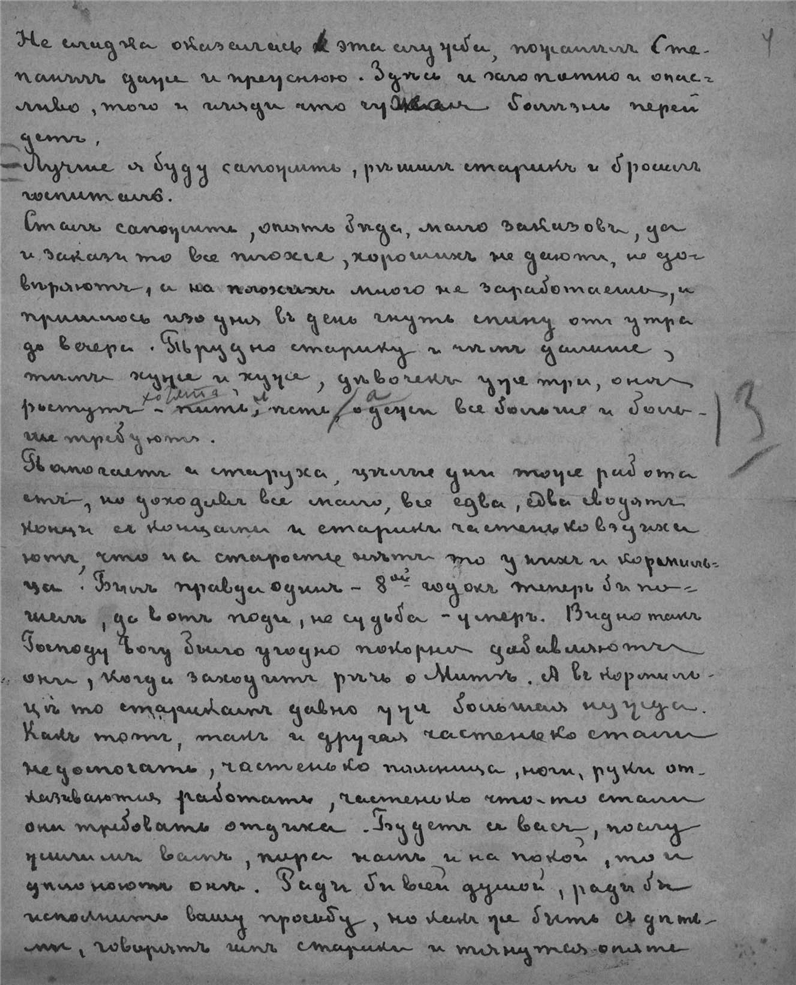 Не сладка оказалась эта служба, пожалилъ Сте-
панычъ даже и прежнюю. Здѣсь и хлопотно и опас-
ливо, того и гляди что чужая болѣзнь перей
детъ.
Лучше я буду сапожить, рѣшилъ старикъ и бросилъ
госпиталь.
Сталъ сапожить, опять бѣда, мало заказовъ, да
и заказы то все плохіе, хорошихъ не даютъ, не до-
вѣряютъ, а на плохихъ много не заработаешь, и
пришлось изо дня въ день гнуть спину отъ утра
до вечера. Трудно старику и чѣмъ дальше,
тѣмъ хуже и хуже, дѣвочекъ уже три, онѣ
ростутъ - пить, ѣсть, одежи все больше и боль-
ше требуютъ.
Помогаетъ и старуха, цѣлые дни тоже работа
етъ, но доходовъ все мало, все едва, едва сводятъ
концы съ концами и старики частенько вздыха
ютъ, что на старости нѣтъ то у нихъ и кормиль-
ца. Былъ правда одинъ - 8ой годокъ теперь бы по-
шелъ, да вотъ поди, не судьба - умеръ. Видно такъ
Господу Богу было угодно покорно добавляютъ
они, когда заходитъ рѣчь о Митѣ. А въ кормиль-
цѣ то старикамъ давно уже большая нужда.
Какъ тотъ, такъ и другая частенько стали
недомогать, частенько поясница, ноги, руки от-
казываются работать, частенько что-то стали
они требовать отдыха. Будетъ съ васъ, послу
жили мы вамъ, пора намъ и на покой, то и
дѣло ноютъ онѣ. Рады бы всей душой, рады бы
исполнить вашу просьбу, но какъ же быть съ дѣть-
ми, говорятъ имъ старики и тянутся опять